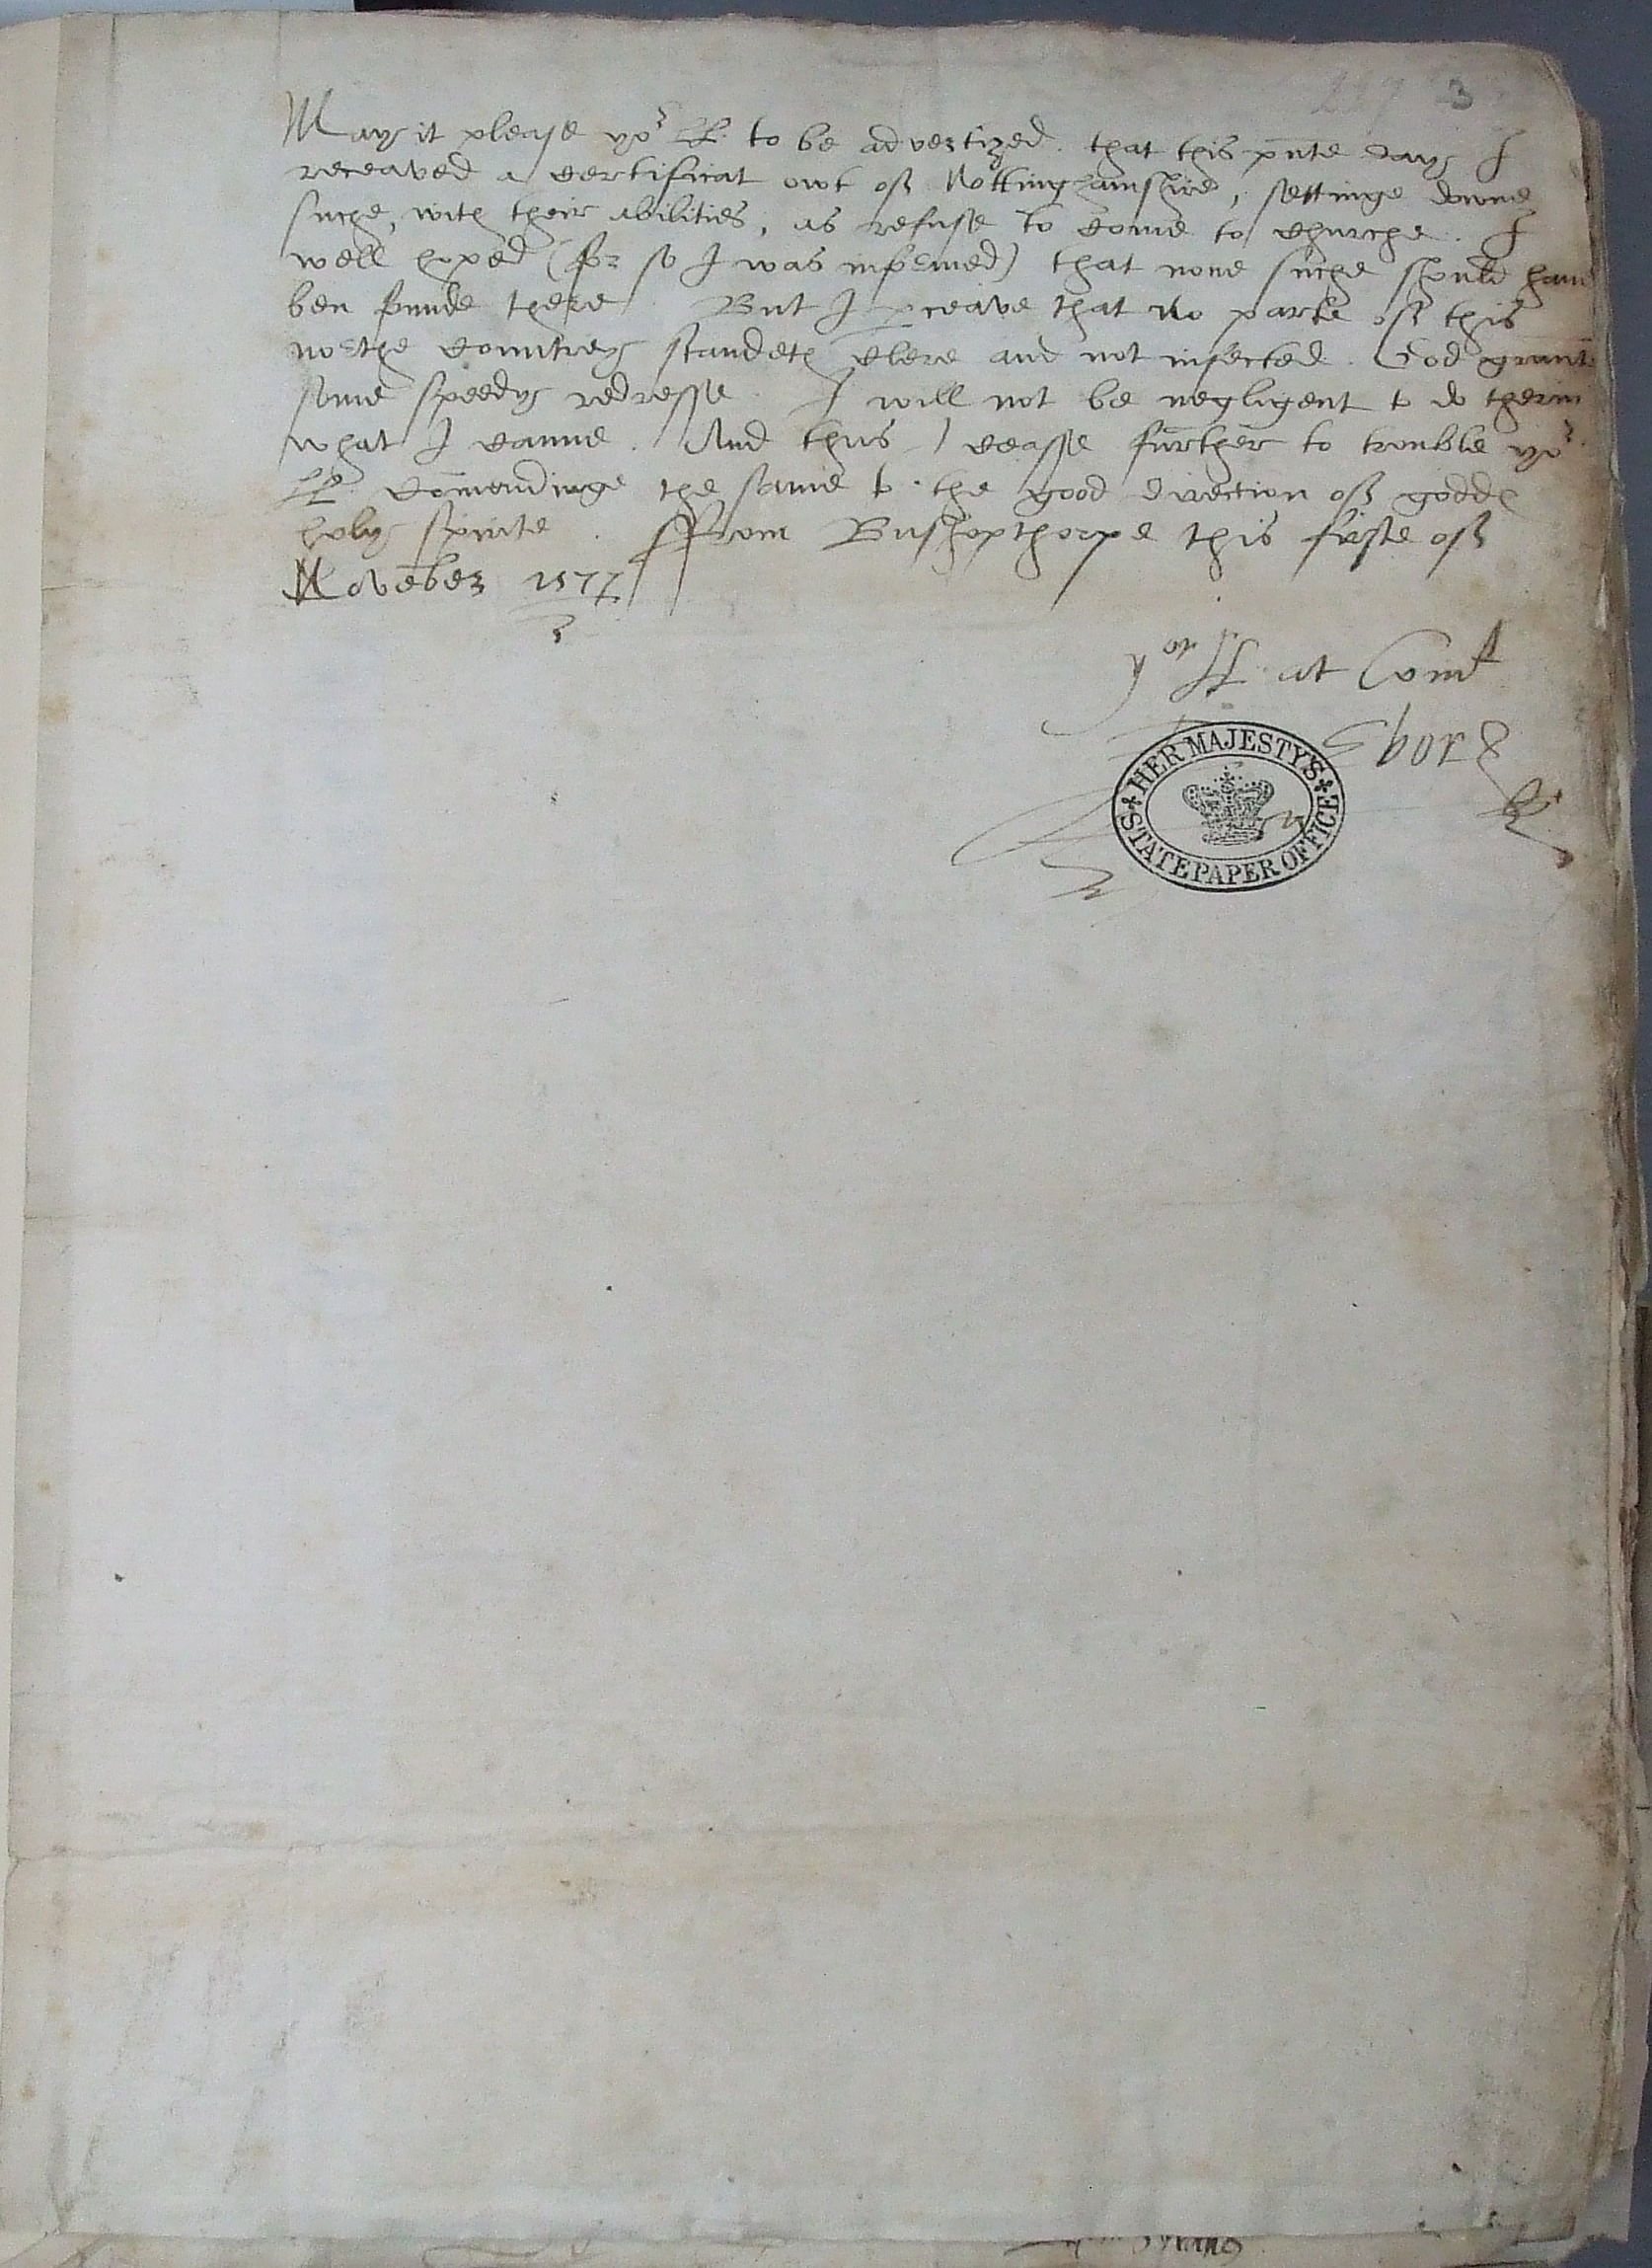 3
May it please yor LL. to be advertized. that this pn̄te day I
receaved a certificat owt off Nottinghamshire, settinge downe
suche, with their abilities, as refuse to come to churche. I
well hoped (for so I was informed) that none suche should haue
ben founde there. But I pceave that no parte off this
northe countrey standeth clere and not infected. God graunte
some speedy redresse. I will not be negligent to do therin
what I canne. And thus I ceasse further to trouble yor
LL. com̄endinge the same to the good direction off godds
holy spirite. ffrom Bushopthorpe this firste off
Novēber 1577
yor LL. at Com̄
Ebor
HER MAJESTY'S STATE PAPER OFFICE